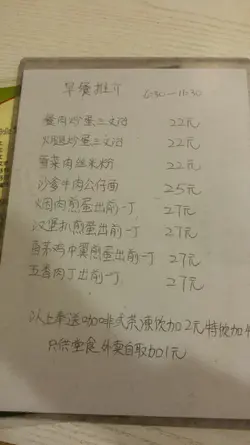 早餐推介 6:30—11:30
蛋肉炒蛋三文治 22元
火腿炒蛋三文治 22元
雪菜肉丝米粉 22元
沙爹牛肉公仔面 25元
烟肉煎蛋出前一丁 27元
汉堡扒煎蛋出前一丁 27元
香茅鸡中翼煎蛋出前一丁 27元
五香肉丁出前一丁 27元
以上奉送咖啡或茶冻饮加2元特饮加
只供堂食外卖自取加1元